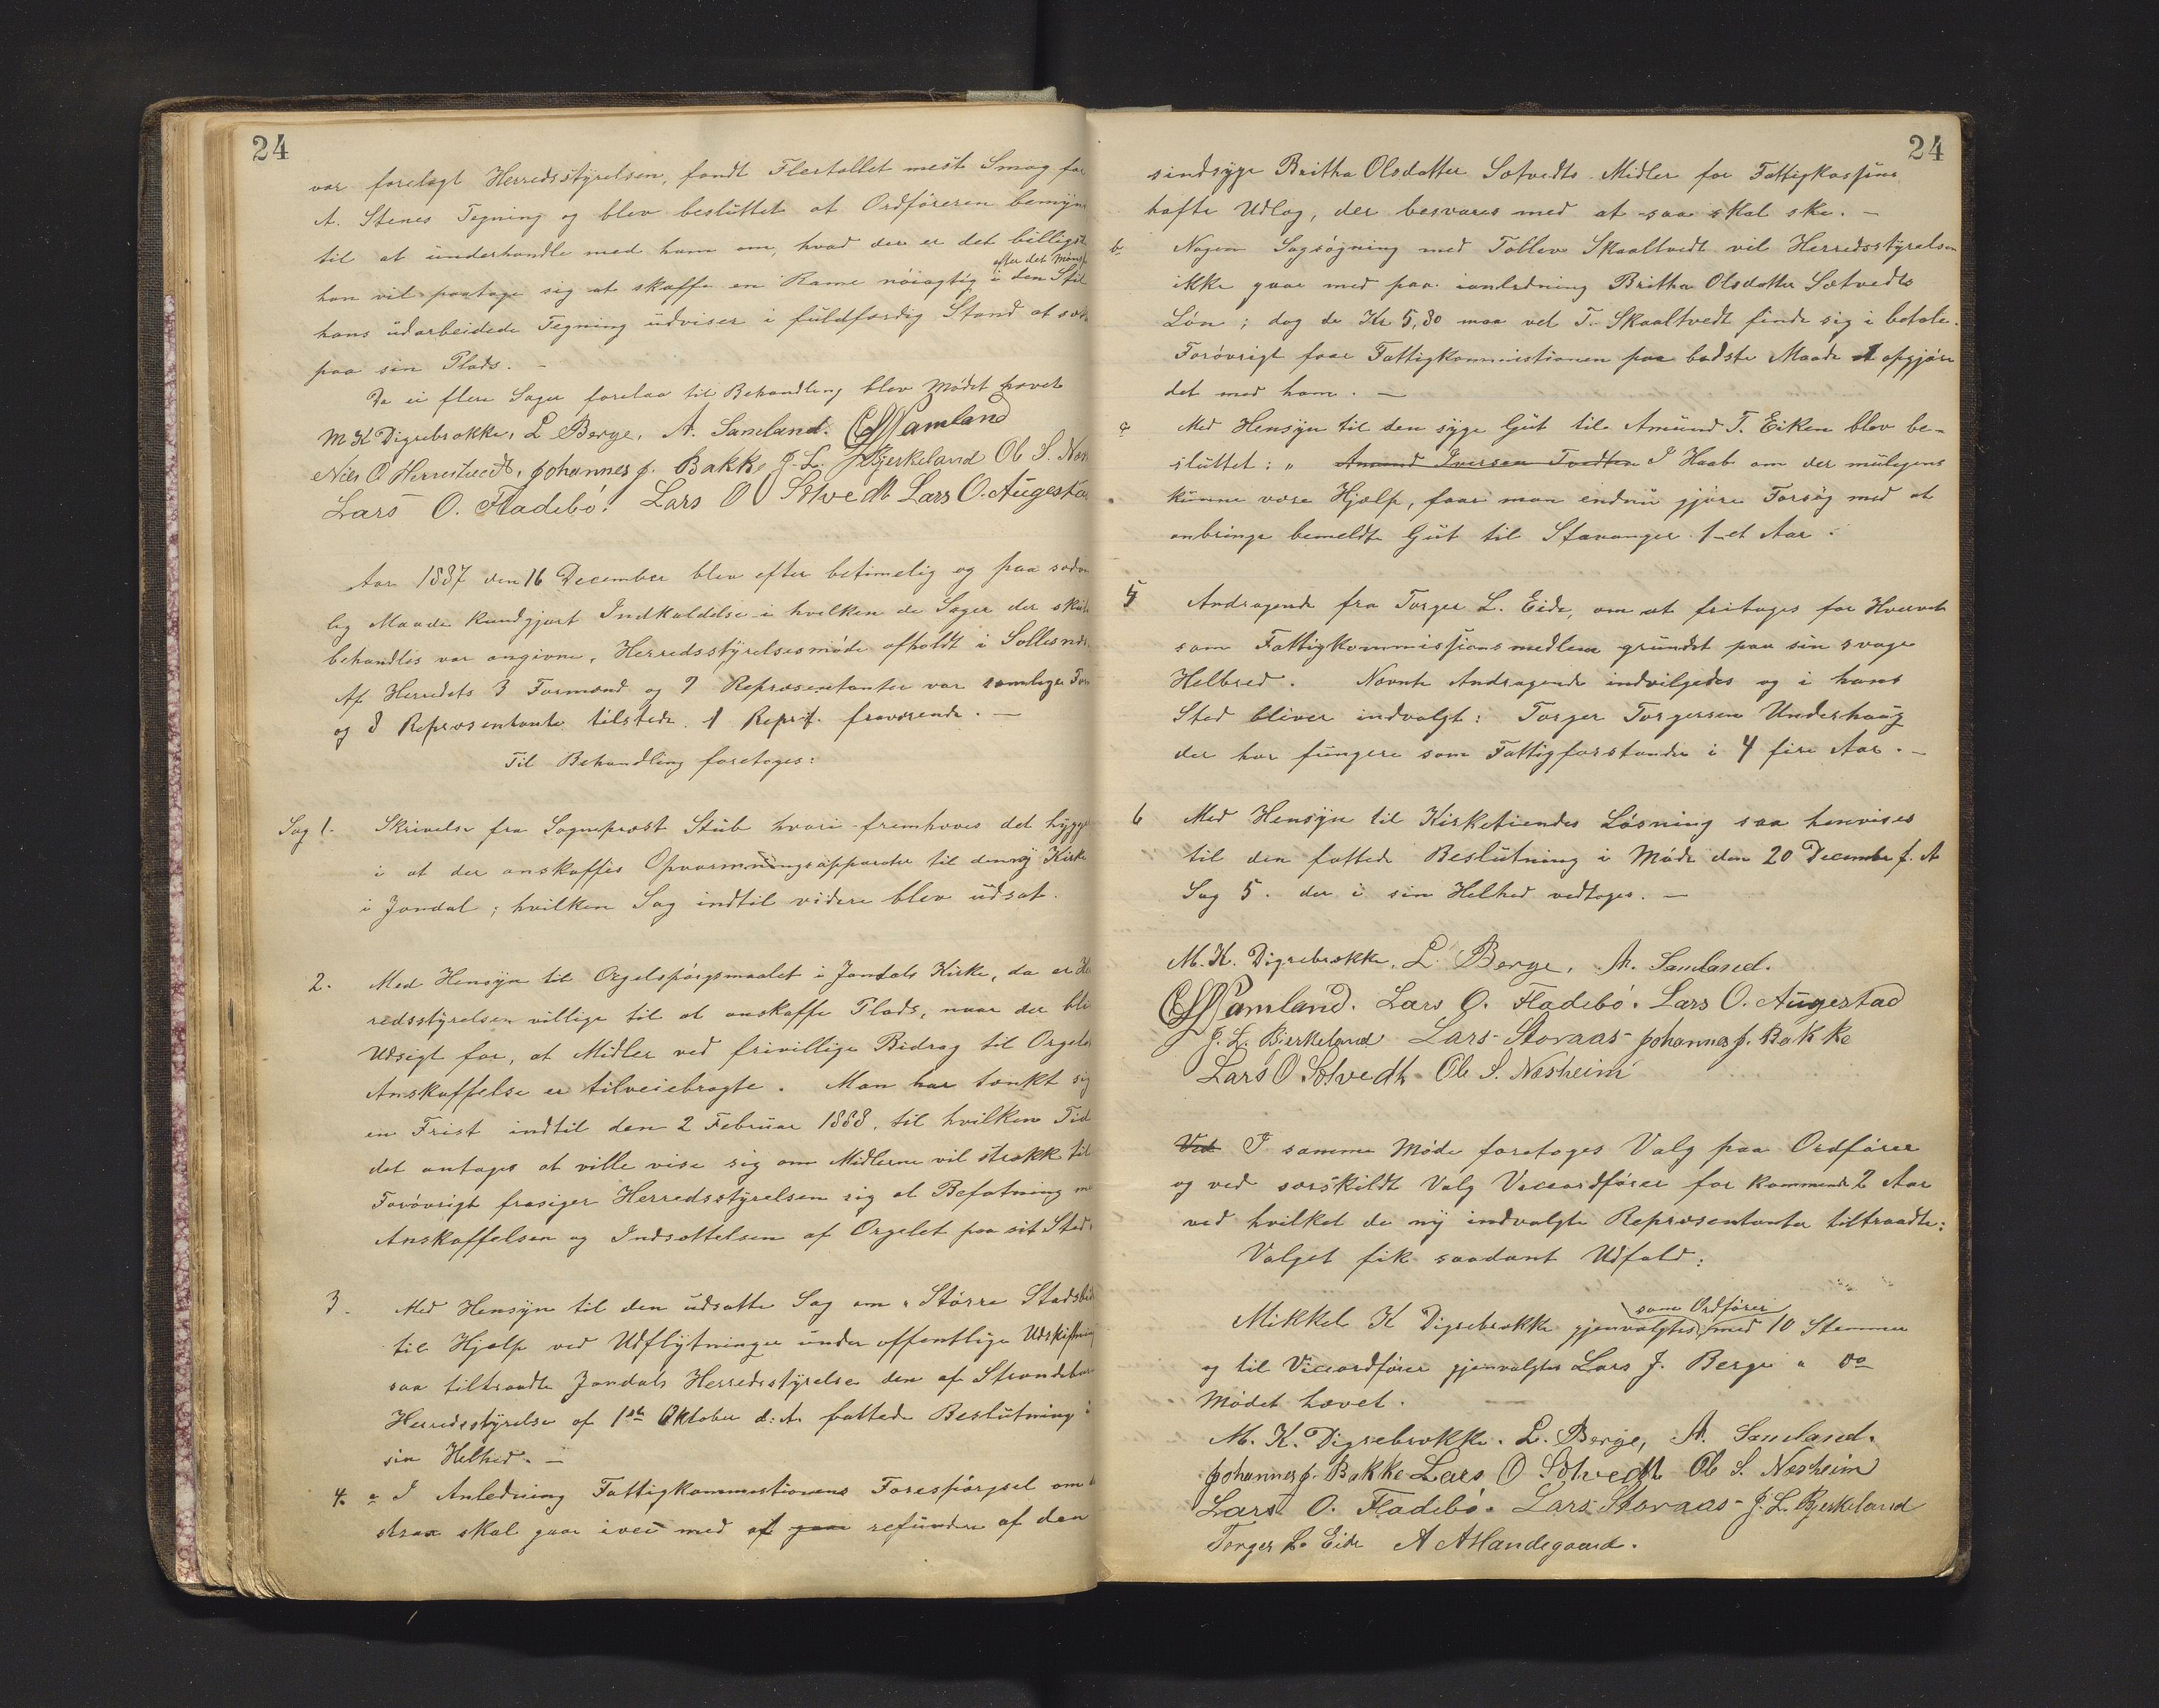 24
var forelagt Herredsstyrelsen, fandt Flertallet mest Smag for
A. Stenes Tegning og blev besluttet at Ordføreren bemyn
til at underhandle med ham om, hvad der er det billigst
efter det Mønst
han vil paatage sig at skaffe en Ramme nøiagtig i den Stil
hans udarbeidede Tegning udviser i fuldfærdig Stand at sæt
paa sin Plads. -
Da ei flere Sager forelaa til Behandling blev Mødet hævet
M K Digrebrække, L Berge, A. Samland. Samland
Niels O Herrestvedt, Johannes J. Bakke J. L. Bjerkeland Ol S. Næs
Lars O. Fladebø. Lars O Sætvedt Lars O. Augesta
Aar 1887 den 16 December blev efter betimelig og paa sædva
lig Maade kundgjort Indkaldelse i hvilken de Sager der skul
behandles var angivne, Herredsstyrelsesmøde afholdt i Sollesnes
Af Herredets 3 Formænd og 9 Repræsentanter var samlige For
og 8 Repræsentanter tilstede. 1 Repr. fraværende. -
Til Behandling foretoges:
Sag 1. Skrivelse fra Sognepræst Stub hvori fremhæves det hygge
i at der anskaffes Opvarmningsapparater til den ny Kirke
i Jondal; hvilken Sag indtil videre blev udsat.
2. Med Hensyn til Orgelspørgsmaalet i Jondals Kirke, da er He
redsstyrelsen villige til at anskaffe Plads, naar der bli
Udsigt for, at Midler ved frivillige Bidrag til Orgelets
Anskaffelse er tilveiebragte. Man har tænkt sig
en Frist indtil den 2 Februar 1888, til hvilken Tid
det antages at ville vise sig om Midlerne vil strække til
Forøvrigt frasiger Herredsstyrelsen sig al Befatning me
Anskaffelsen og Indsættelsen af Orgelet paa sit Sted.
3. Med Hensyn til den udsatte Sag om "Større Stadsbid
til Hjælp ved Udflytninger under offentlige Udskiftning
saa tiltraadte Jondals Herredsstyrelse den af Strandebar
Herredsstyrelse af 1ste Oktober d: A. fattede Beslutning i
sin Helhed. -
4. a I Anledning Fattigkommistionens Forespørgsel om
strax skal gaae ivei med at gaae refundere af den
24
sindsyge Britha Olsdatter Sætvedts Midler for Fattigkassens
hafte Udlæg, der besvares med at saa skal ske. -
b Nogen Sagsøgning med Tollev Skaaltvedt vil Herredsstyrelsen
ikke gaae med paa ianledning Britha Olsdatter Sætvedts
Løn; dog de Kr 5,80 maa vel T. Skaaltvedt finde sig i betale.
Forøvrigt faar Fattigkommistionen paa bedste Maade at opgjøre
det med ham. -
c Med Hensyn til den syge Gut til Amund T. Eiken blev be-
sluttet: " Amund Iversen Tvedten I Haab om der muligens
kunne være Hjælp, faar man endnu gjøre Forsøg med at
anbringe bemeldte Gut til Stavanger 1-et Aar.
5 Andragende fra Torger L. Eide, om at fritages for Hvervet
som Fattigkommissionsmedlem grundet paa sin svage
Helbred. Nævnte Andragende indvilgedes og i hans
Sted bliver indvalgt: Torger Torgersen Underhaug
der har fungere som Fattigforstander i 4 fire Aar. -
6 Med Hensyn til Kirketiendes Løsning saa henvises
til den fattede Beslutning i Møde den 20 December f. A
Sag 5. der i sin Helhed vedtoges. -
M. K. Digrebrække, L. Berge, A. Samland.
Samland. Lars O. Fladebø. Lars O. Augestad
J. L. Bjerkeland Lars Storaas Johannes J. Bakke
Lars O Sætvedt Ole S. Næsheim
Ved I samme Møde foretoges Valg paa Ordfører
og ved særskildt Valg Viceordfører for kommende 2 Aar
ved hvilket de ny indvalgte Repræsentanter tiltraadte:
Valget fik saadant Udfald:
som Ordfører
Mikkel K Digrebrække gjenvalgtes med 10 Stemmer
og til Viceordfører gjenvalgtes Lars J. Berge " do
Mødet hævet.
M. K. Digrebrække. L. Berge, A. Samland.
Johannes J. Bakke Lars O Sætvedt Ole S. Næsheim
Lars O. Fladebø. Lars Storaas J. L. Bjerkeland
Torger L. Eide A Handegaard.